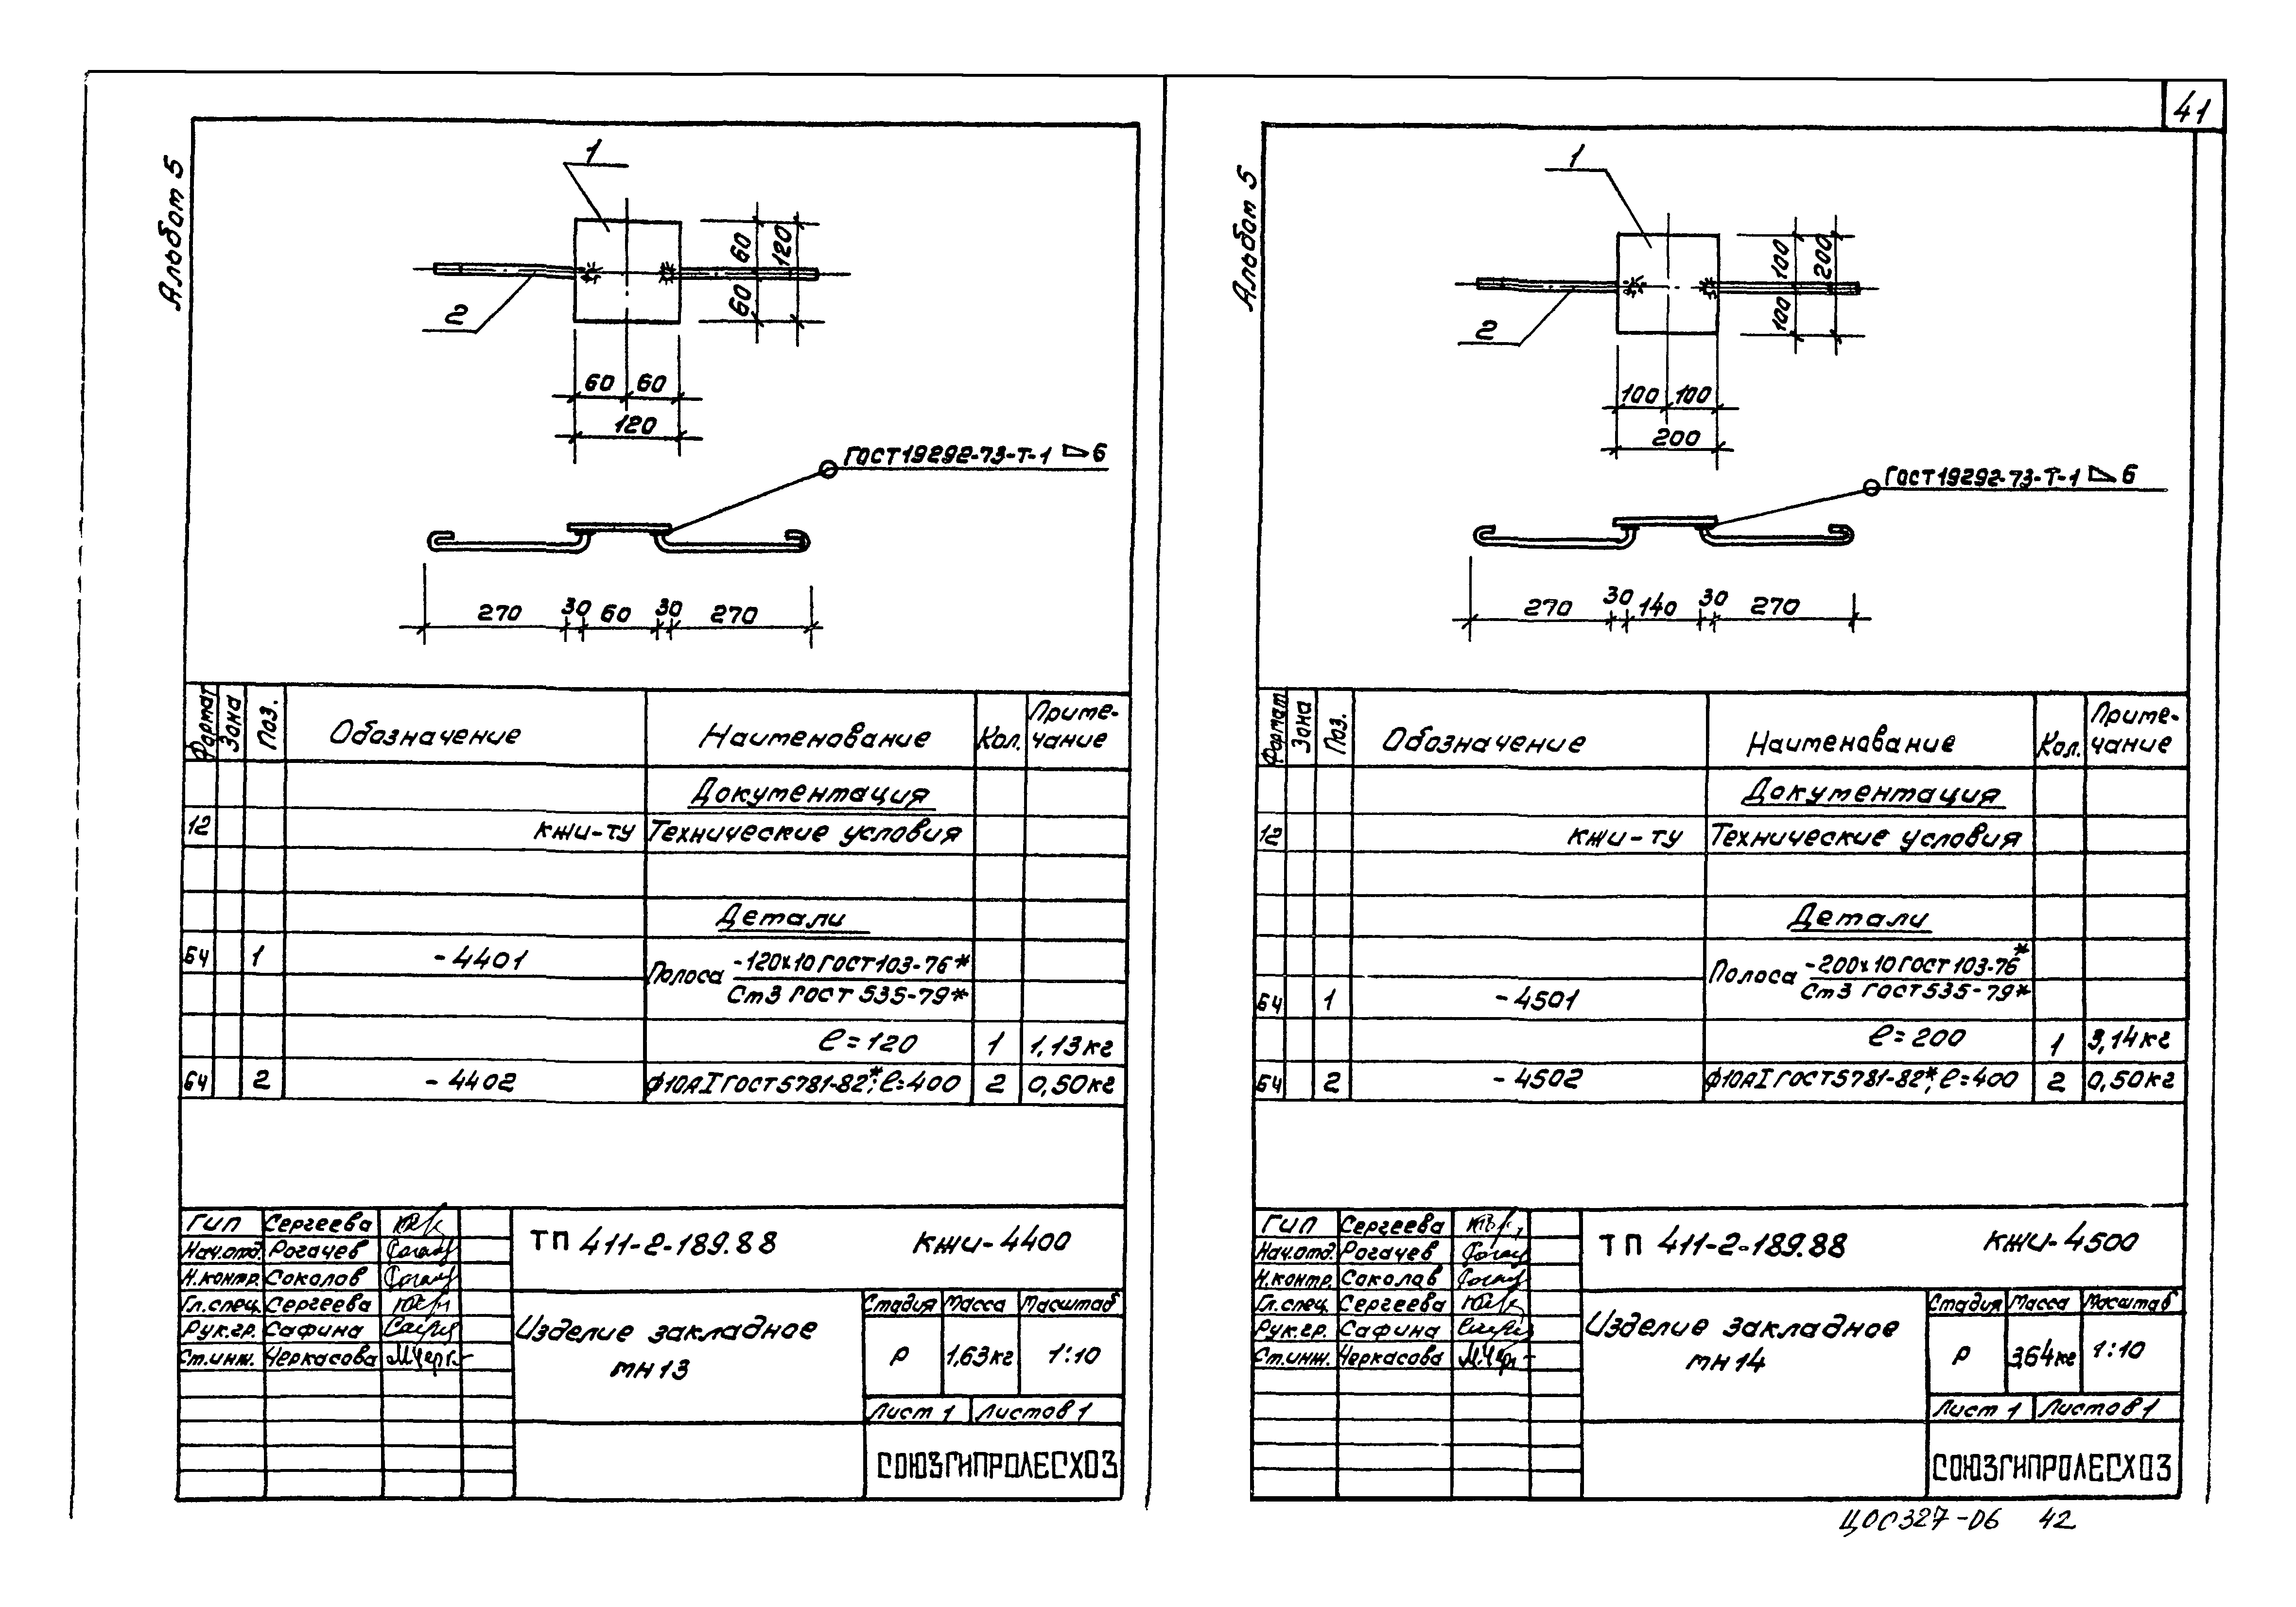 41
Альбом 5
1
2
60
60
120
60 60
120
ГОСТ 19292-73-Т-1 6
270 30 60 30 270
Формат Зона Поз. Обозначение Наименование Кол. Приме-
чание
Документация
12 КЖИ-ТУ Технические условия
Детали
БЧ 1 -4401 Полоса -120х10 ГОСТ 103-76*
Ст3 ГОСТ 535-79*
ℓ=120 1 1,13кг
БЧ 2 -4402 ф10АI ГОСТ 5781-82*; ℓ=400 2 0,50кг
ГИП Сергеева
Нач.отд. Рогачев
Н.контр. Соколов
Гл.спец. Сергеева
Рук.гр. Сафина
Ст.инж. Черкасова
ТП 411-2-189.88 КЖИ-4400
Изделие закладное
МН13
Стадия Масса Масштаб
Р 1,63кг 1:10
Лист 1 Листов 1
СОЮЗГИПРОЛЕСХОЗ
Альбом 5
1
2
100
100
200
100 100
200
ГОСТ 19292-73-Т-1 6
270 30 140 30 270
Формат Зона Поз. Обозначение Наименование Кол. Приме-
чание
Документация
12 КЖИ-ТУ Технические условия
Детали
Полоса -200х10 ГОСТ 103-76*
БЧ 1 -4501 Ст3 ГОСТ 535-79*
ℓ=200 1 3,14кг
БЧ 2 -4502 ф10АI ГОСТ 5781-82*, ℓ=400 2 0,50кг
ГИП Сергеева
Нач.отд. Рогачев
Н.контр. Соколов
Гл.спец. Сергеева
Рук.гр. Сафина
Ст.инж. Черкасова
ТП 411-2-189.88 КЖИ-4500
Изделие закладное
МН14
Стадия Масса Масштаб
Р 3,64кг 1:10
Лист 1 Листов 1
СОЮЗГИПРОЛЕСХОЗ
Ц00327-06 42